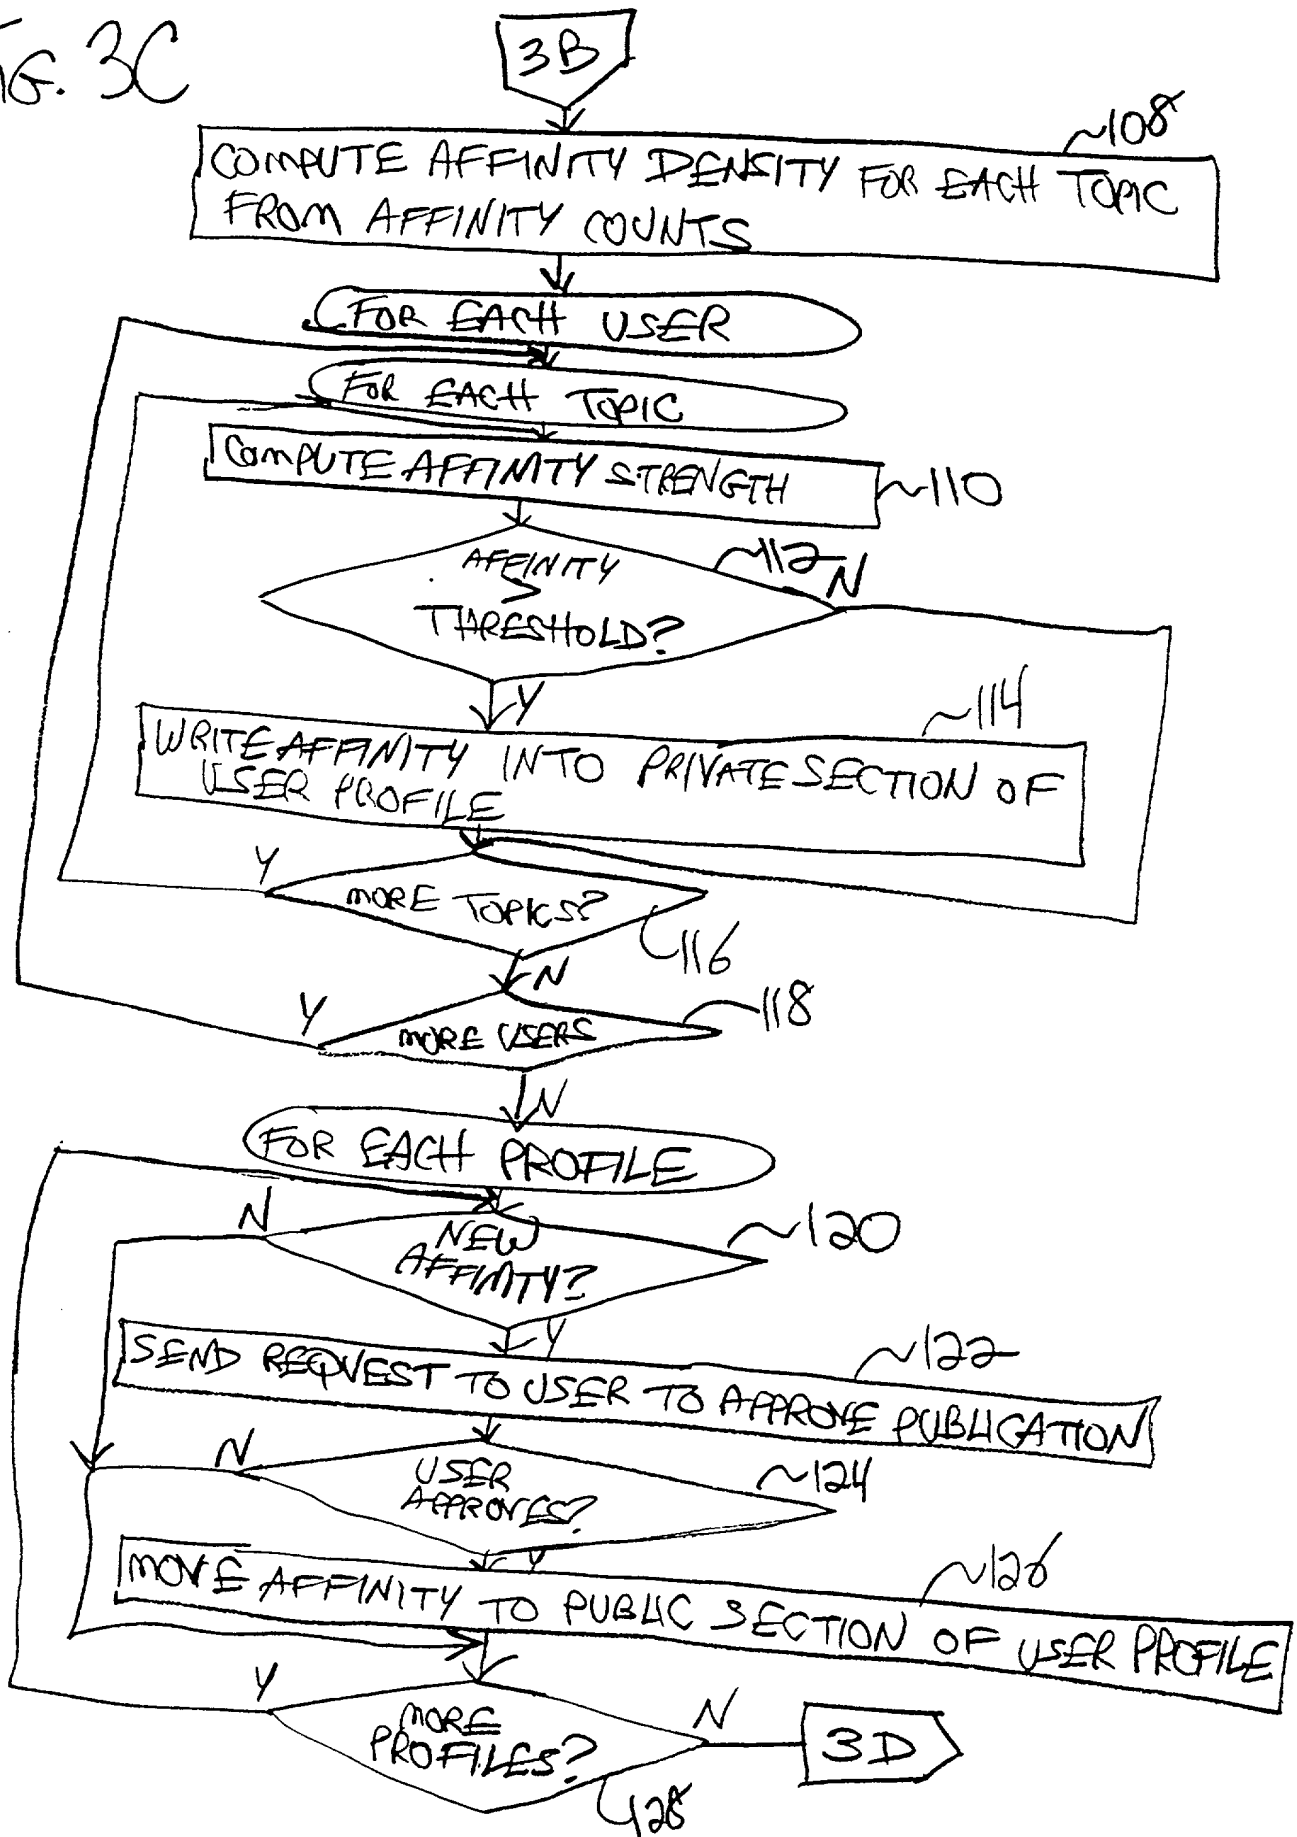 FIG. 3C
3B
108
COMPUTE AFFINITY DENSITY FOR EACH TOPIC
FROM AFFINITY COUNTS
FOR EACH USER
FOR EACH TOPIC
COMPUTE AFFINITY STRENGTH
110
AFFINITY
>
THRESHOLD?
112
N
Y
114
WRITE AFFINITY INTO PRIVATE SECTION OF
USER PROFILE
Y
MORE TOPICS?
116
N
Y
MORE USERS
118
N
FOR EACH PROFILE
N
NEW
AFFINITY?
120
Y
122
SEND REQUEST TO USER TO APPROVE PUBLICATION
N
USER
APPROVES?
124
Y
126
MOVE AFFINITY TO PUBLIC SECTION OF USER PROFILE
Y
MORE
PROFILES?
N
3D
128